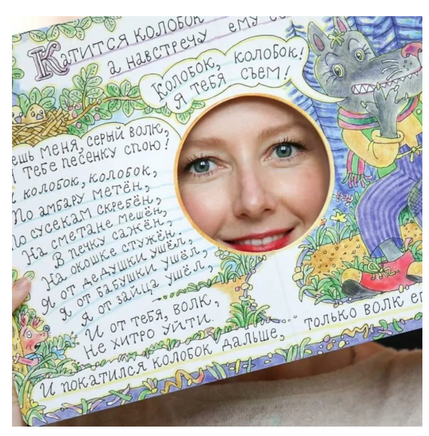 Катится колобок
а навстречу ему
Колобок, колобок!
Я тебя съем!
ешь меня, серый волк,
тебе песенку спою!
колобок, колобок,
По амбару метён,
По сусекам скребён,
На сметане мешён,
В печку сажён,
На окошке стужён.
Я от дедушки ушёл,
Я от бабушки ушёл,
Я от зайца ушёл,
И от тебя, волк,
Не хитро уйти.
И покатился колобок дальше, только волк его